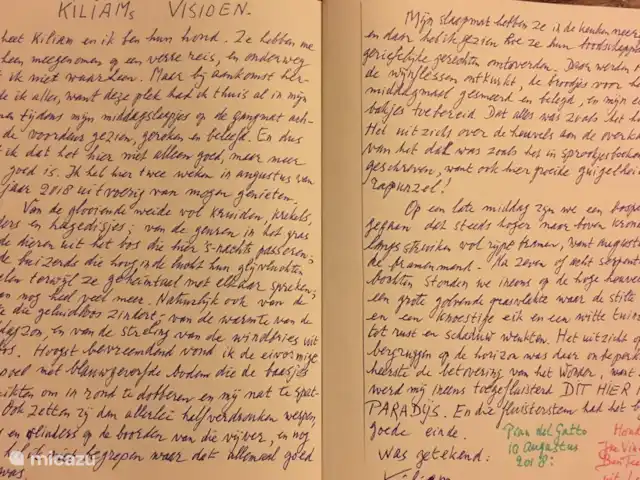 KILIAMs VISIOEN.
heet Kiliam en ik ben hun hond. Ze hebben me
meegenomen op een verre reis, en onderweg
ik niet waarheen. Maar bij aankomst her-
de ik alles, want deze plek had ik thuis al in mijn
tijdens mijn middagslaapjes op de gangmat ach-
de voordeur gezien, geroken en beleefd. En dus
ik dat het hier niet alleen goed, maar meer
goed is. Ik heb hier twee weken in augustus van
jaar 2018 uitvoerig van mogen genieten.
Van de glooiende weide vol kruiden, krekels,
en hagedisjes; van de geuren in het gras
de dieren uit het bos die hier 's-nachts passeren;
de buizerds die hoog in de lucht hun glijvluchten
terwijl ze gehaaid met elkaar spreken;
van nog heel veel meer. Natuurlijk ook van de
te die geluidloos zindert; van de warmte van de
zon, en van de streling van de windbries uit
bos. Hoogst bevreemdend vond ik de eivormige
poel met blauwgeverfde bodem die de baasjes
om in rond te dobberen en mij nat te spat-
Ook zetten zij dan allerlei half verdronken wespen,
en vlinders op de boorden van die vijver, en nog
begrepen waar dat allemaal goed
was.
Mijn slaapmat hebben ze in de keuken neerge
en daar heb ik gezien hoe ze hun boodschappen
geriefelijke gerechten omtoverden. Daar werden
de wijnflessen ontkurkt, de broodjes voor het
middagmaal gesmeerd en belegd, en mijn
bakjes toebereid. Dat alles was zoals het
Het uitzicht over de heuvels aan de overkant
van het dal was zoals het in sprookjesboeken
geschreven, want ook hier groeide guigelheil
rapunzel!
Op een late middag zijn we een bospad
gegaan dat steeds hoger naar boven
langs struiken vol rijpe bramen, want august
de bramenmaand. Na zeven of acht serpent
bochten stonden we ineens op de hoge heuvel
een grote golvende grasvlakte waar de stilte
en een knoestige eik en een witte tuin
tot rust en schaduw wenkten. Het uitzicht op
bergruggen op de horizon was daar
heerste de betovering van het Worden, want
werd mij ineens toegefluisterd DIT HIER
PARADIJS. En die fluisterstem had het
goede einde.
Was getekend:
Kiliam
Pian del Gatto
10 augustus
2018: